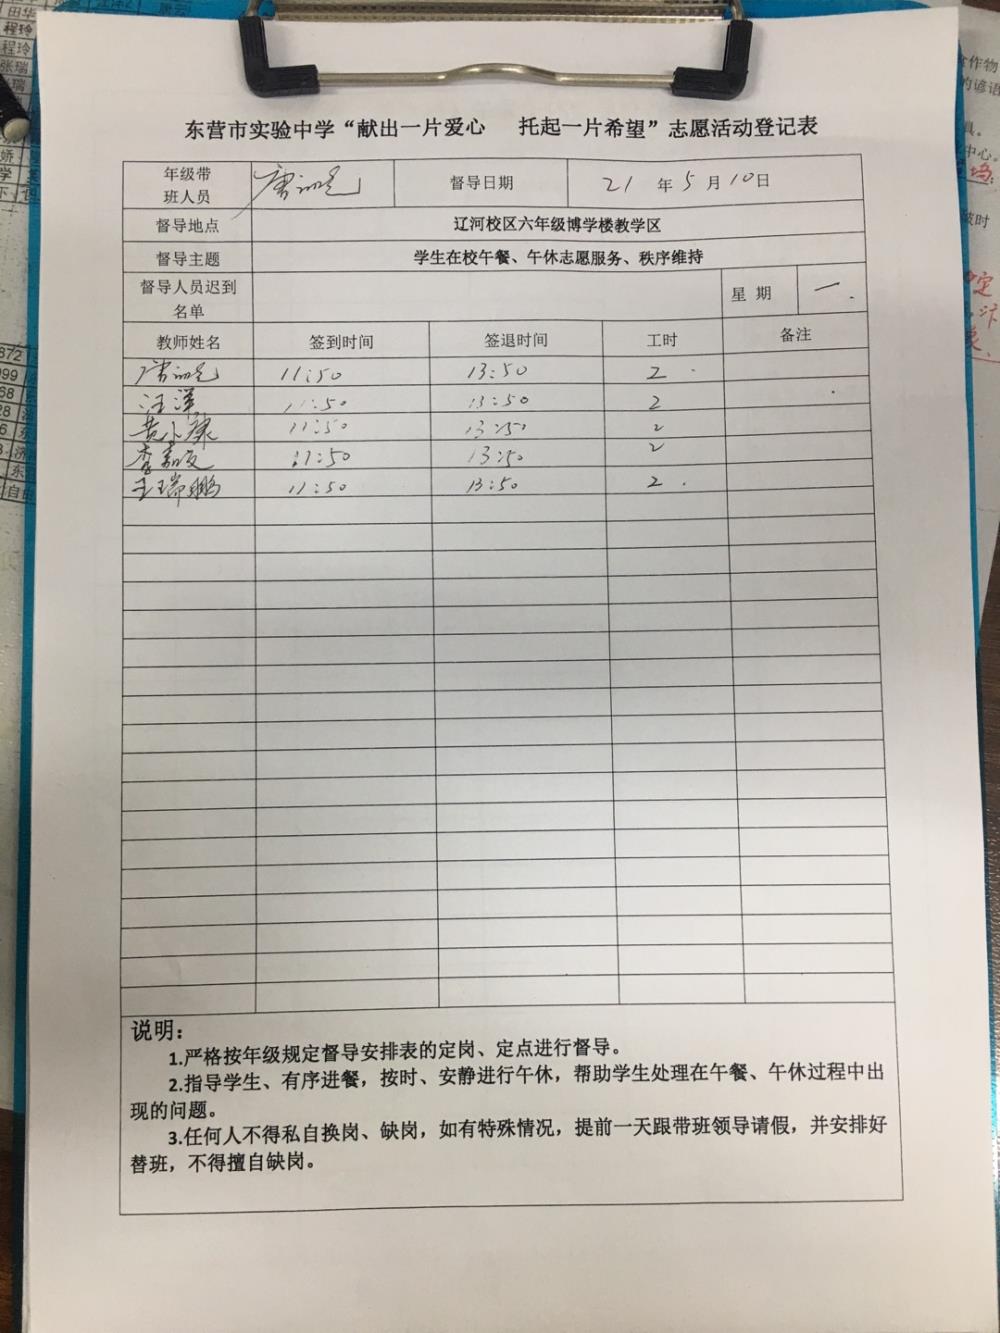 东营市实验中学“献出一片爱心 托起一片希望”志愿活动登记表
年级带班人员 督导日期 21年5月10日
督导地点 辽河校区六年级博学楼教学区
督导主题 学生在校午餐、午休志愿服务、秩序维持
督导人员迟到名单 星期 一
教师姓名 签到时间 签退时间 工时 备注
11:50 13:50 2
汪洋 11:50 13:50 2
黄小康 11:50 13:50 2
李 11:50 13:50 2
王瑞鹏 11:50 13:50 2
说明：
1.严格按年级规定督导安排表的定岗、定点进行督导。
2.指导学生、有序进餐，按时、安静进行午休，帮助学生处理在午餐、午休过程中出
现的问题。
3.任何人不得私自换岗、缺岗，如有特殊情况，提前一天跟带班领导请假，并安排好
替班，不得擅自缺岗。